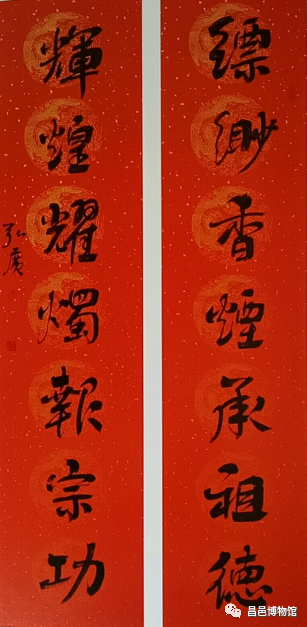 縹緲香煙承祖德
輝煌耀燭報宗功
弘廣
昌邑博物馆